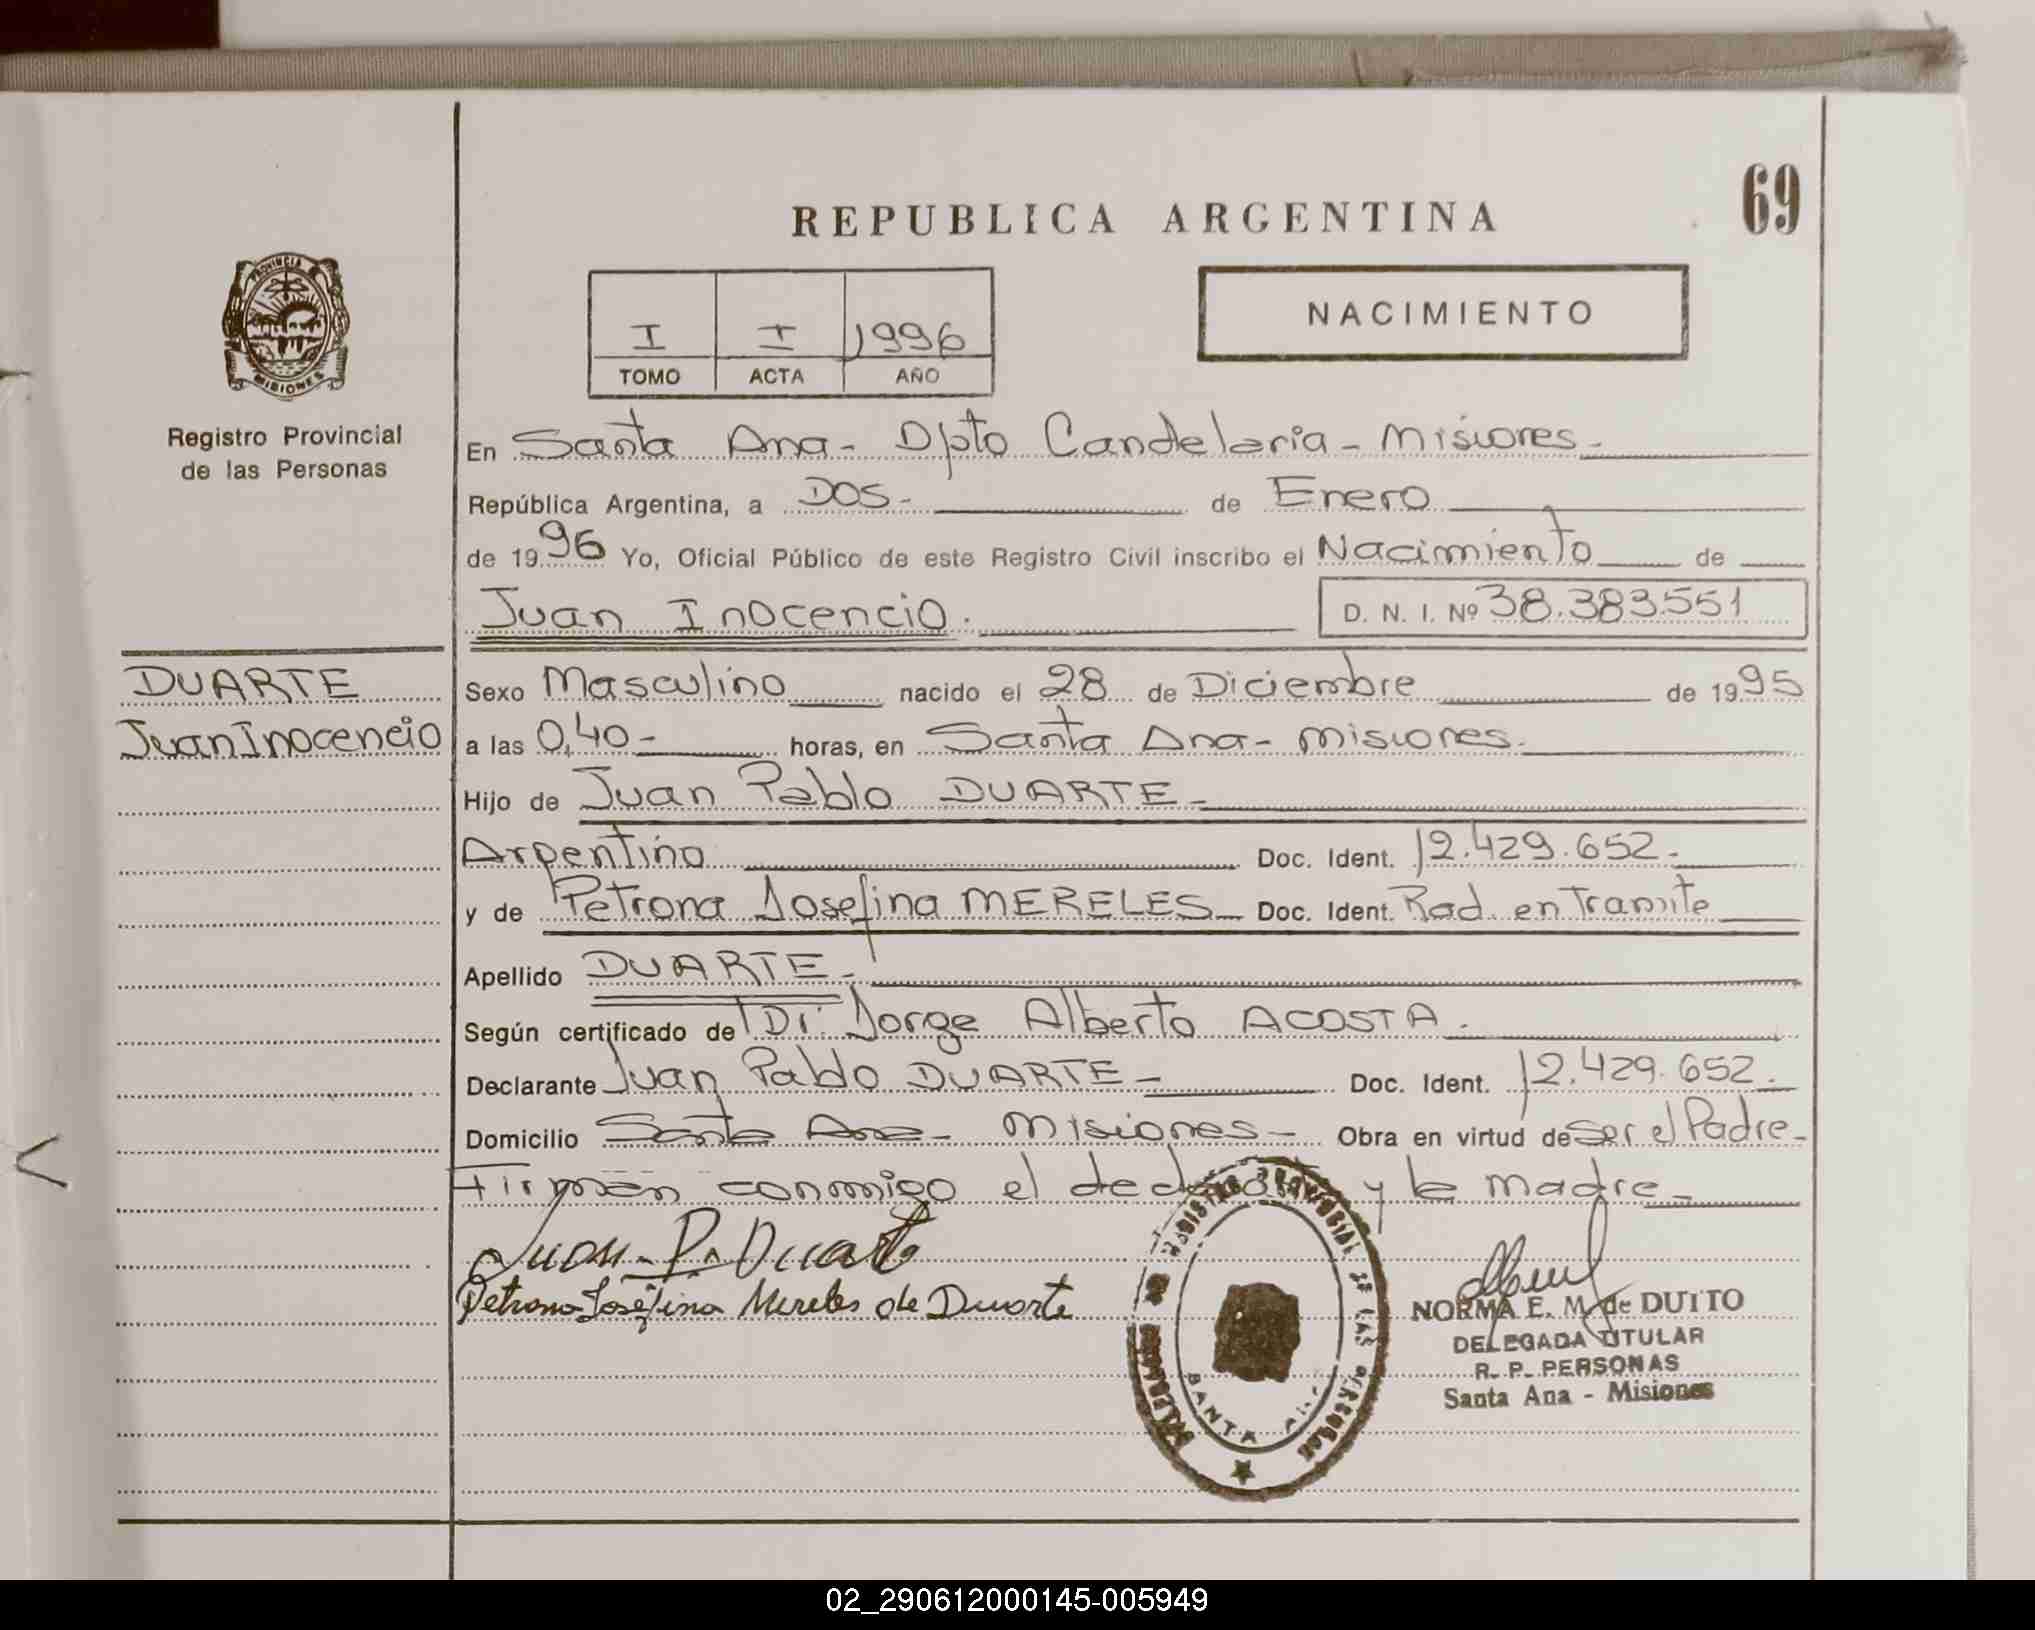 69
REPUBLICA ARGENTINA
PROVINCIA
MISIONES
Registro Provincial
de las Personas
I I 1996
TOMO ACTA AÑO
NACIMIENTO
En Santa Ana - Dpto Candelaria - Misiones -
República Argentina, a DOS - de Enero
de 1996 Yo, Oficial Público de este Registro Civil inscribo el Nacimiento de
Juan Inocencio. D. N. I. Nº 38.383.551
DUARTE
Juan Inocencio
Sexo Masculino nacido el 28 de Diciembre de 1995
a las 0,40 - horas, en Santa Ana - Misiones -
Hijo de Juan Pablo DUARTE -
Argentino Doc. Ident. 12.429.652 -
y de Petrona Josefina MERELES - Doc. Ident. Rad. en Tramite
Apellido DUARTE -
Según certificado de Dr. Jorge Alberto ACOSTA.
Declarante Juan Pablo DUARTE - Doc. Ident. 12.429.652.
Domicilio Santa Ana - Misiones - Obra en virtud de Ser el Padre -
Firman conmigo el declarante y la madre -
Juan P. Duarte
Petrona Josefina Mereles de Duarte
REGISTRO PROVINCIAL DE LAS PERSONAS
SANTA ANA
NORMA E. M. de DUTTO
DELEGADA TITULAR
R. P. PERSONAS
Santa Ana - Misiones
02_290612000145-005949